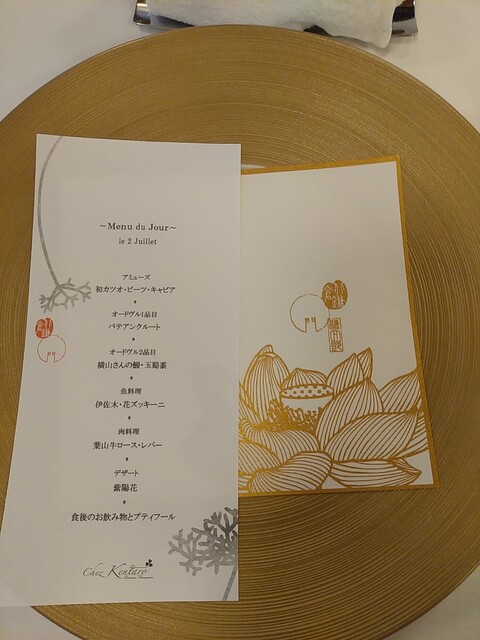 ~Menu du Jour~
le 2 Juillet
アミューズ
初カツオ・ビーツ・キャビア
オードヴル1品目
パテアンクルート
オードヴル2品目
横山さんの鰻・玉蜀黍
魚料理
伊佐木・花ズッキーニ
肉料理
葉山牛ロース・レバー
デザート
紫陽花
食後のお飲み物とプティフール
Chez Kentaro